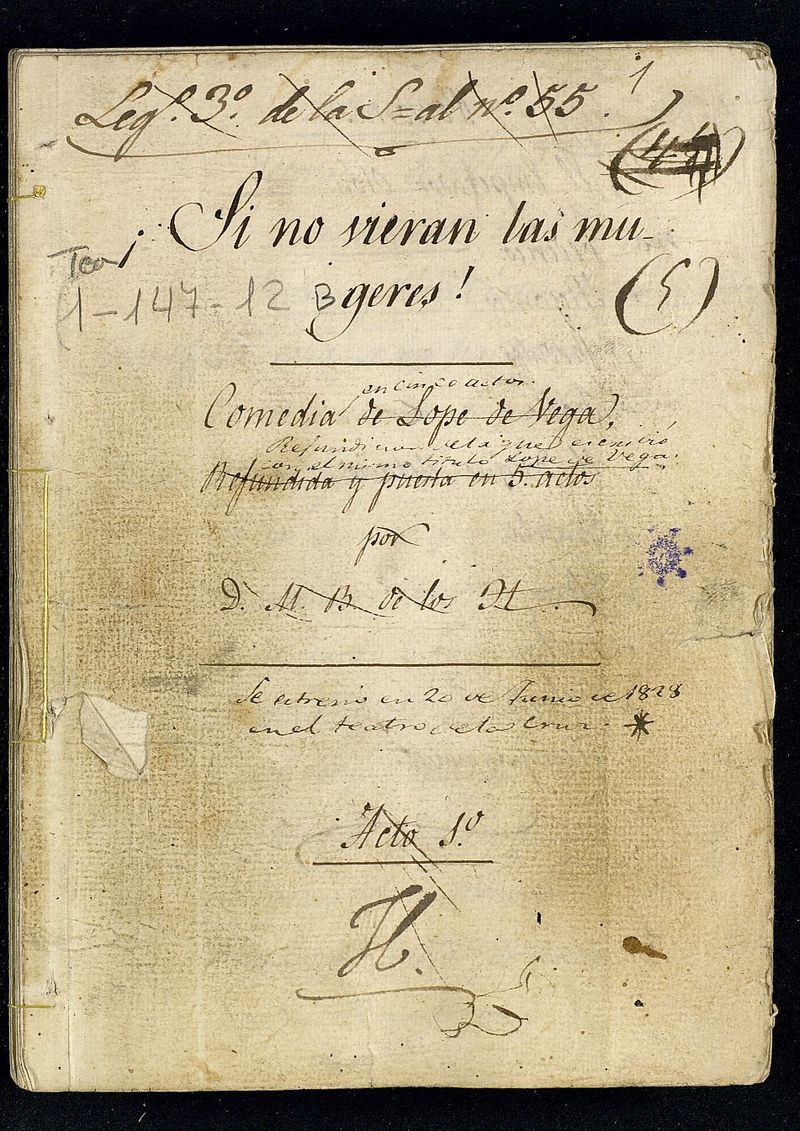 1
Legº. 3º. de la S= al nº. 55.
(44)
¡Si no vieran las mu-
geres!
Tea
1-147-12 B
(5)
en cinco actos.
Comedia de Lope de Vega,
Refundicion de la que escribió
con el mismo titulo Lope de Vega.
Refundida y puesta en 5. actos
por
D. M. B. de los H.
Se estrenó en 20 de Junio de 1828
en el teatro de la Cruz. *
Acto 1.º
H.